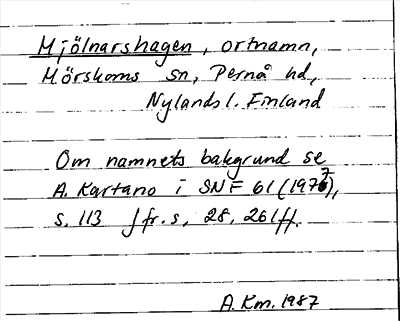 Mjölnarshagen, ortnamn,
Mörskoms sn, Pernå hd,
Nylands l. Finland
Om namnets bakgrund se
A. Kartano i SNF 61 (1977),
s. 113 jfr. s, 28, 261 ff.
A. Km. 1987